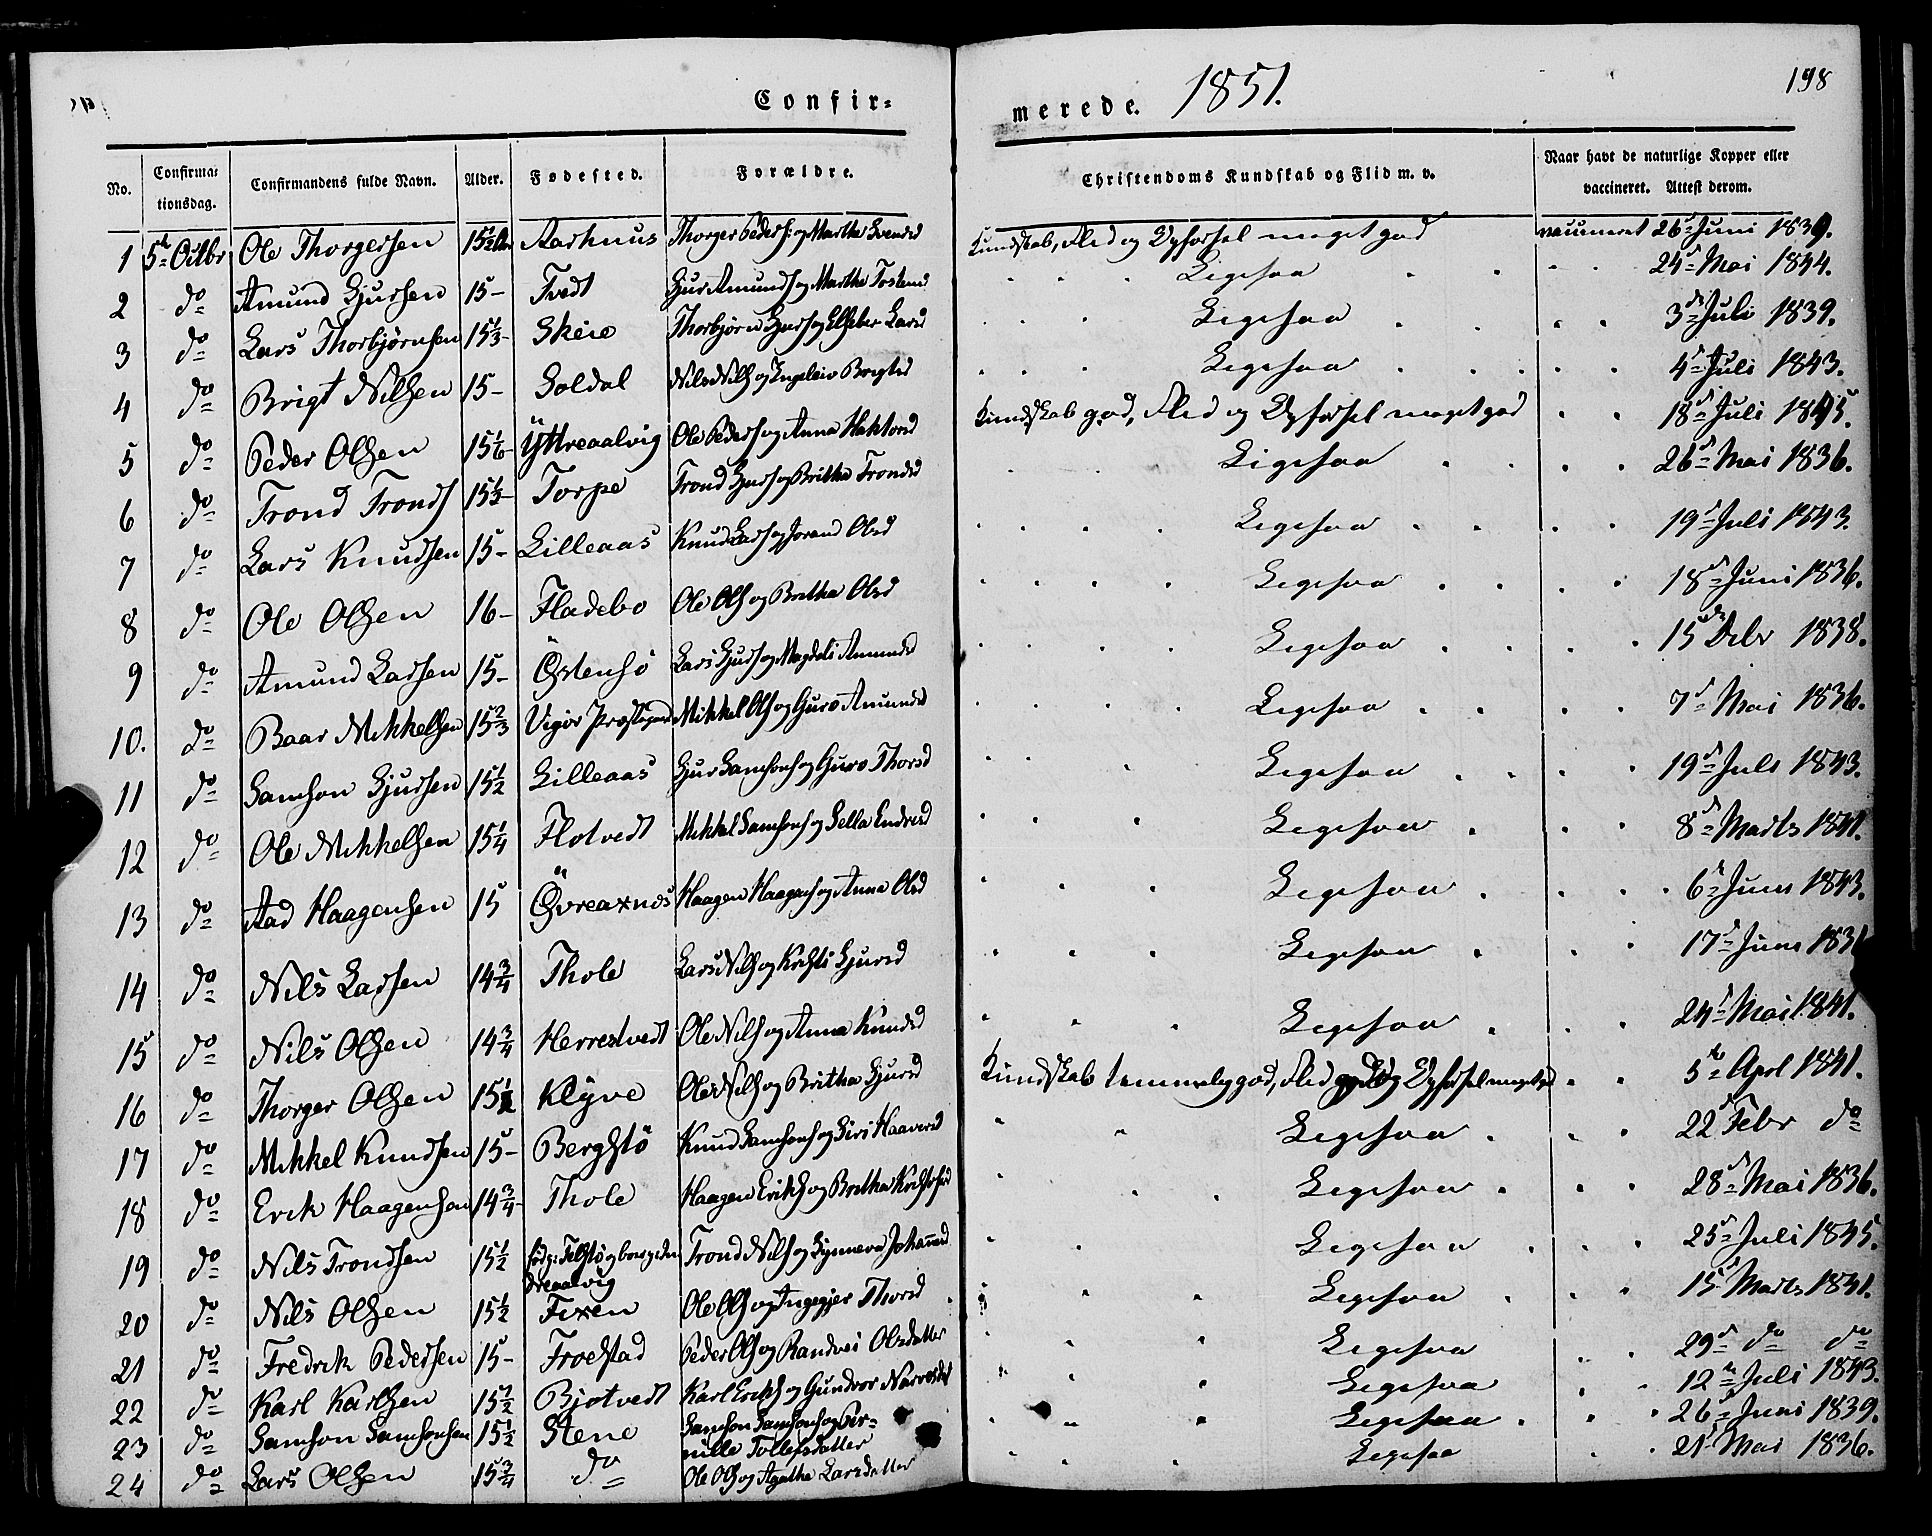 Confir-
merede. 1851.
198
No. Confirmationsdag. Confirmandens fulde Navn. Alder. Fødested. Forældre. Christendoms Kundskab og Flid m. v. Naar havt de naturlige Kopper eller vaccineret. Attest derom.
1 5te Octbr Ole Thorgersen 15½ Aar Aarhuus Thorger Peders: og Martha Svends Kundskab, Flid og Opførsel meget god vaccineret 26de Juni 1839.
2 do Amund Gjursen 15- Tvedt Gjur Amunds og Martha Tostensd Ligesaa 24de Mai 1844.
3 do Lars Thorbjørnsen 15⅓- Skeie Thorbjørn Gjurs og Elsebe Larsd Ligesaa 3de Juli 1839.
4 do Brigt Nilsen 15- Soldal Nils Nils og Ingeleiv Brigtsd Ligesaa 4de Juli 1843.
5 do Peder Olsen 15⅙- Yttreaalvig Ole Peders og Anna Haktorsd Kundskab god, Flid og Opførsel meget god 18de Juli 1845.
6 do Trond Tronds 15½- Torpe Trond Gjurs og Britha Trondsd Ligesaa 26de Mai 1836.
7 do Lars Knudsen 15- Lilleaas Knud Lars og Jorand Olsd Ligesaa 19de Juli 1843.
8 do Ole Olsen 16- Fladebo Ole Ols og Britha Olsd Ligesaa 18de Juni 1836.
9 do Amund Larsen 15- Østensö Lars Gjurs og Magdeli Amundsd Ligesaa 15de Debr 1838.
10. do Baar Mikkelsen 15⅔ Vigør Præstegjeld Mikkel Ols og Guro Amundsd Ligesaa 7de Mai 1836.
11 do Samson Gjursen 15½ Lilleaas Gjur Samsons og Guro Thorsd Ligesaa 19de Juli 1843.
12 do Ole Mikkelsen 15¼ Flotvedt Mikkel Samsons og Sella Endresd Ligesaa 8de Marts 1841.
13 do Aad Haagensen 15 Øvreaxnes Haagen Haagens og Anna Olsd Ligesaa 6te Juni 1843.
14 do Nils Larsen 14¾ Thole Lars Nils og Kristi Gjursd Ligesaa 17de Juni
15 do Nils Olsen 14¾ Herrestvedt Ole Nils og Anna Knudsd Ligesaa 24de Mai 1841.
16 do Thorger Olsen 15½ Klyve Ole Nils og Britha Gjursd Kundskab temmelig god, Flid og Opførsel meget god 5te April 1841.
17 do Mikkel Knudsen 15- Bergstö Knud Samsons og Siri Haaversd Ligesaa 22de Febr do
18 do Erik Haagensen 14¾- Thole Haagen Eriks og Britha Kristofersd Ligesaa 28de Mai 1836.
19 do Nils Trondsen 15½ Trond Nils og Synneva Johannesd Ligesaa 25de Juli 1845.
20 do Nils Olsen 15½ Fixen Ole Ols og Ingegjer Thorsd Ligesaa 15de Marts 1841.
21 do Fredrik Pedersen 15- Froestad Peder Ols og Randvei Olsdatter Ligesaa 29de do do
22 do Karl Karlsen 15½ Bjotvedt Karl Eriks og Gundvor Narvesdat Ligesaa 12te Juli 1843.
23 do Samson Samsonsen 15½ Stene Samson Samsons og Per-
nille Tollefsdatter Ligesaa 26de Juni 1839.
24 do Lars Olsen 15¾ do Ole Ols og Agatha Larsdatter Ligesaa 21de Mai 1836.